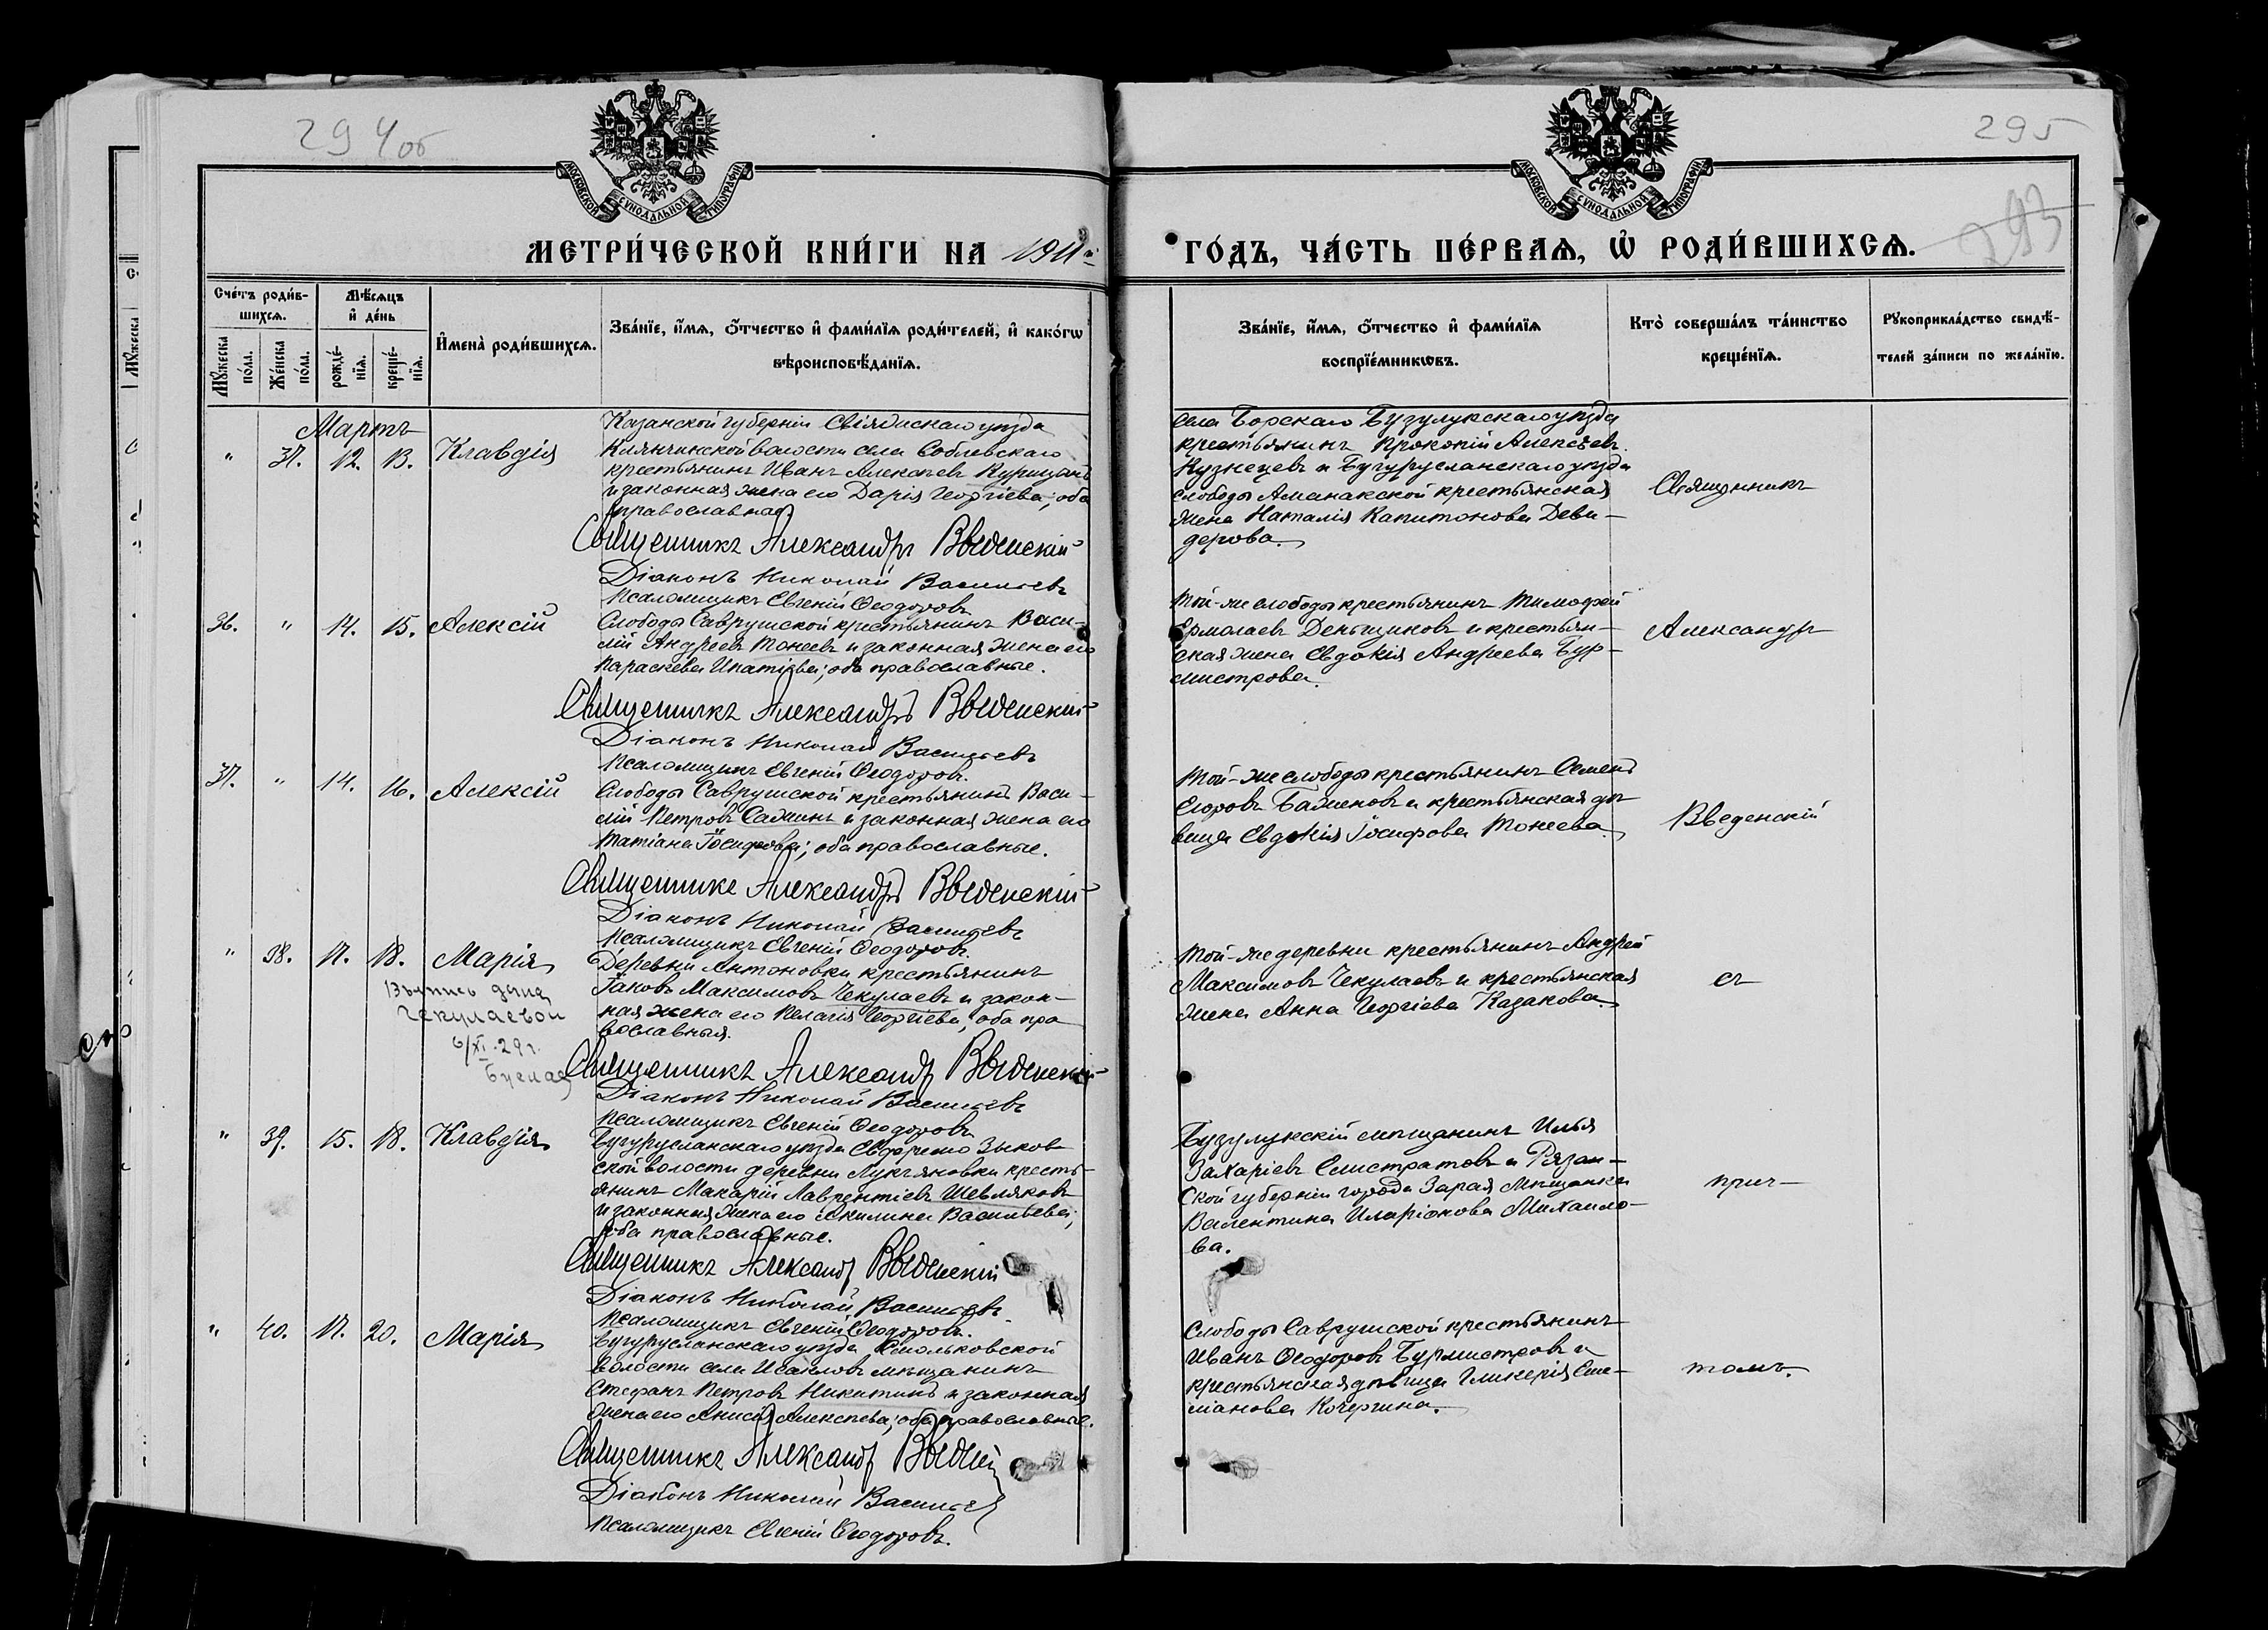 294об
295
293
МОСКОВСКОЙ СѴНОДАЛЬНОЙ ТИПОГРАФІИ
МОСКОВСКОЙ СѴНОДАЛЬНОЙ ТИПОГРАФІИ
МЕТРИ́ЧЕСКОЙ КНИ́ГИ НА 1911й
ГО́ДЪ, ЧА́СТЬ ПЕ́РВАѦ, Ѡ҆ РОДИ́ВШИХСѦ.
Сче́тъ роди́в-
шихсѧ.
Мꙋ́жеска по́ла.
Же́нска по́ла.
Мѣ́сѧцъ
и҆ де́нь
рожде́-
нїѧ.
креще́-
нїѧ.
И҆мена̀ роди́вшихсѧ.
Зва́нїе, и҆́мѧ, ѻ҆́тчество и҆ фами́лїѧ роди́телей, и҆ како́гѡ
вѣроисповѣ́данїѧ.
Зва́нїе, и҆́мѧ, ѻ҆́тчество и҆ фами́лїѧ
воспрїе́мникѡвъ.
Кто̀ соверша́лъ та́инство
креще́нїѧ.
Рꙋкоприкла́дство свидѣ́-
телей за́писи по жела́нїю.
Мартъ
" 37. 12. 13. Клавдія
Казанской губерніи Свіяжскаго уѣзда
волости села
крестьянинъ Иванъ Алексѣевъ
и законная жена его Дарія Георгіева; оба
православные.
Священникъ Александръ Введенскій
Діаконъ Николай Васильевъ
Псаломщикъ Евгеній Ѳеодоровъ
села Борскаго Бузулукскаго уѣзда
крестьянинъ Прокопій Алексѣевъ
Кузнецовъ и Бугурусланскаго уѣзда
слободы Аманакской крестьянская
жена Наталія Капитонова Деви-
дерова.
Священникъ
36. " 14. 15. Алексій
Слободы Саврушской крестьянинъ Васи-
лій Андреевъ Тонеевъ и законная жена его
Параскева Ипатіева; оба православные.
Священникъ Александръ Введенскій
Діаконъ Николай Васильевъ
Псаломщикъ Евгеній Ѳеодоровъ.
Той-же слободы крестьянинъ Тимофей
Ермолаевъ Деньщиковъ и крестьян-
ская жена Евдокія Андреева Бур-
мистрова.
Александръ
37. " 14. 16. Алексій
Слободы Саврушской крестьянинъ Васи-
лій Петровъ Сажинъ и законная жена его
Татіана Іосифова; оба православные.
Священникъ Александръ Введенскій
Діаконъ Николай Васильевъ
Псаломщикъ Евгеній Ѳеодоровъ.
Той-же слободы крестьянинъ Семенъ
Егоровъ Баженовъ и крестьянская дѣ-
вица Евдокія Іосифова Тонеева.
Введенскій
" 38. 17. 18. Марія
Выпись дана
Чекулаевой
6/XI-29г.
Деревни Антоновки крестьянинъ
Іаковъ Максимовъ Чекулаевъ и закон-
ная жена его Пелагія Георгіева, оба пра
вославныя.
Священникъ Александръ Введенскій
Діаконъ Николай Васильевъ
Псаломщикъ Евгеній Ѳеодоровъ
Той-же деревни крестьянинъ Андрей
Максимовъ Чекулаевъ и крестьянская
жена Анна Георгіева Казакова.
съ
" 39. 15. 18. Клавдія
Бугурусланскаго уѣзда
ской волости деревни Лукьяновки кресть-
янинъ Макарій Лаврентіевъ Шевляковъ
и законная жена его Акилина Васильева;
оба православные.
Священникъ Александръ Введенскій
Діаконъ Николай Васильевъ.
Псаломщикъ Евгеній Ѳеодоровъ.
Бузулукскій мѣщанинъ Илья
Захаріевъ Елистратовъ и Рязан-
ской губерніи города Зарая мѣщанка
Валентина Иларіонова Михаило-
ва.
прич-
" 40. 17. 20. Марія
Бугурусланскаго уѣзда Смольковской
волости села Исаклов мѣщанинъ
Стефанъ Петровъ Никитинъ и законная
жена его Анисія Алексѣева; оба православные.
Священникъ Александръ Введенскій
Діаконъ Николай Васильевъ
Псаломщикъ Евгеній Ѳеодоровъ.
Слободы Саврушской крестьянинъ
Иванъ Ѳеодоровъ Бурмистровъ и
крестьянская дѣвица Гликерія Сте-
Кочергина.
томъ.